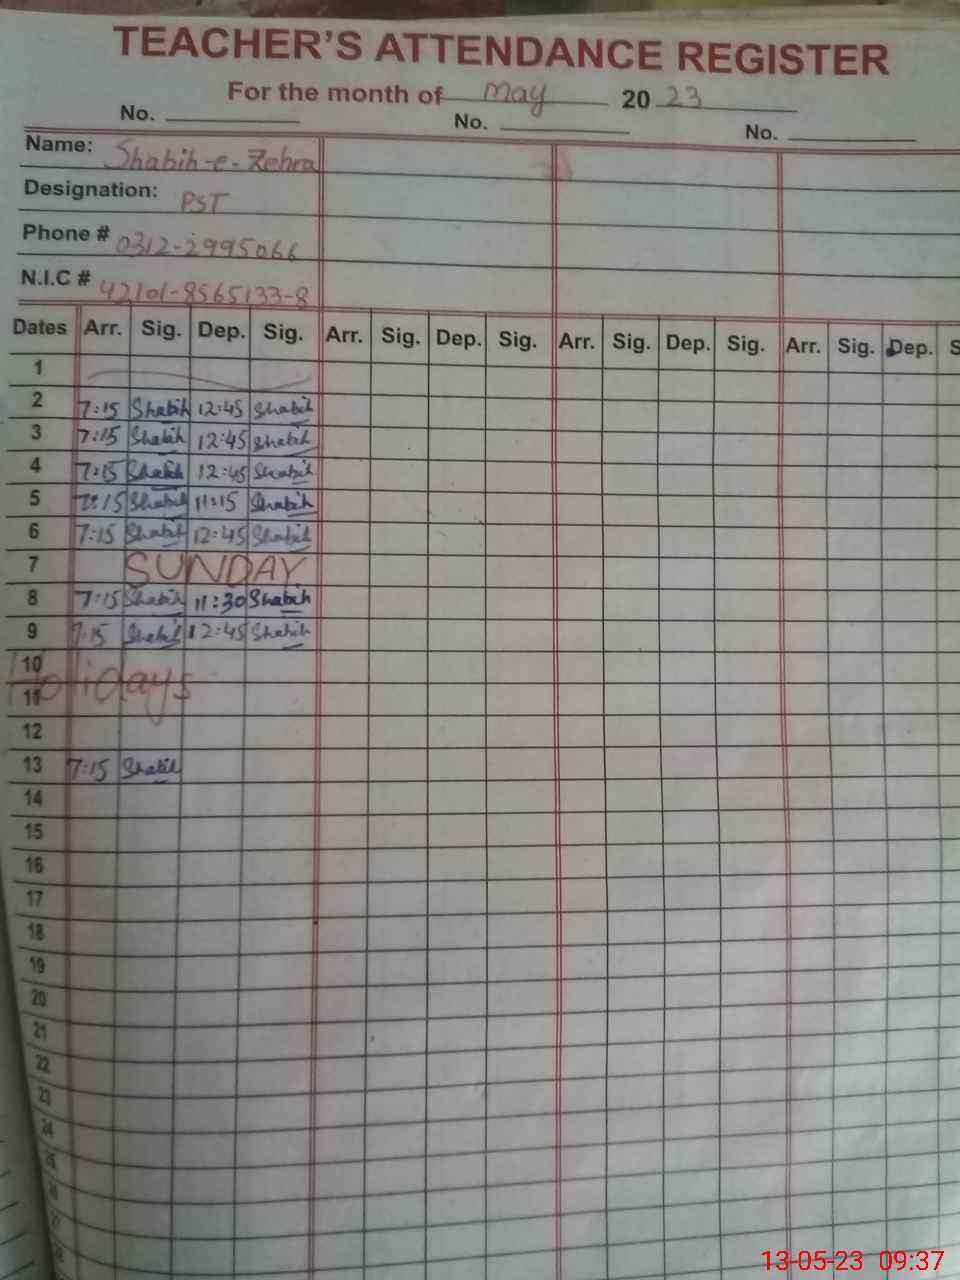 TEACHER'S ATTENDANCE REGISTER
For the month of May 2023
No. No. No.
Name: Shabih-e-Zehra
Designation: PST
Phone # 0312-2995066
N.I.C # 42101-8565133-8
Dates Arr. Sig. Dep. Sig. Arr. Sig. Dep. Sig. Arr. Sig. Dep. Sig. Arr. Sig. Dep. S
1
2 7:15 Shabih 12:45 Shabih
3 7:15 Shabih 12:45 Shabih
4 7:15 Shabih 12:45 Shabih
5 7:15 Shabih 11:15 Shabih
6 7:15 Shabih 12:45 Shabih
7 SUNDAY
8 7:15 Shabih 11:30 Shabih
9 7:15 Shabih 12:45 Shabih
10
Holidays
11
12
13 7:15 Shabih
14
15
16
17
18
19
20
21
22
23
24
25
26
27
28
13-05-23 09:37